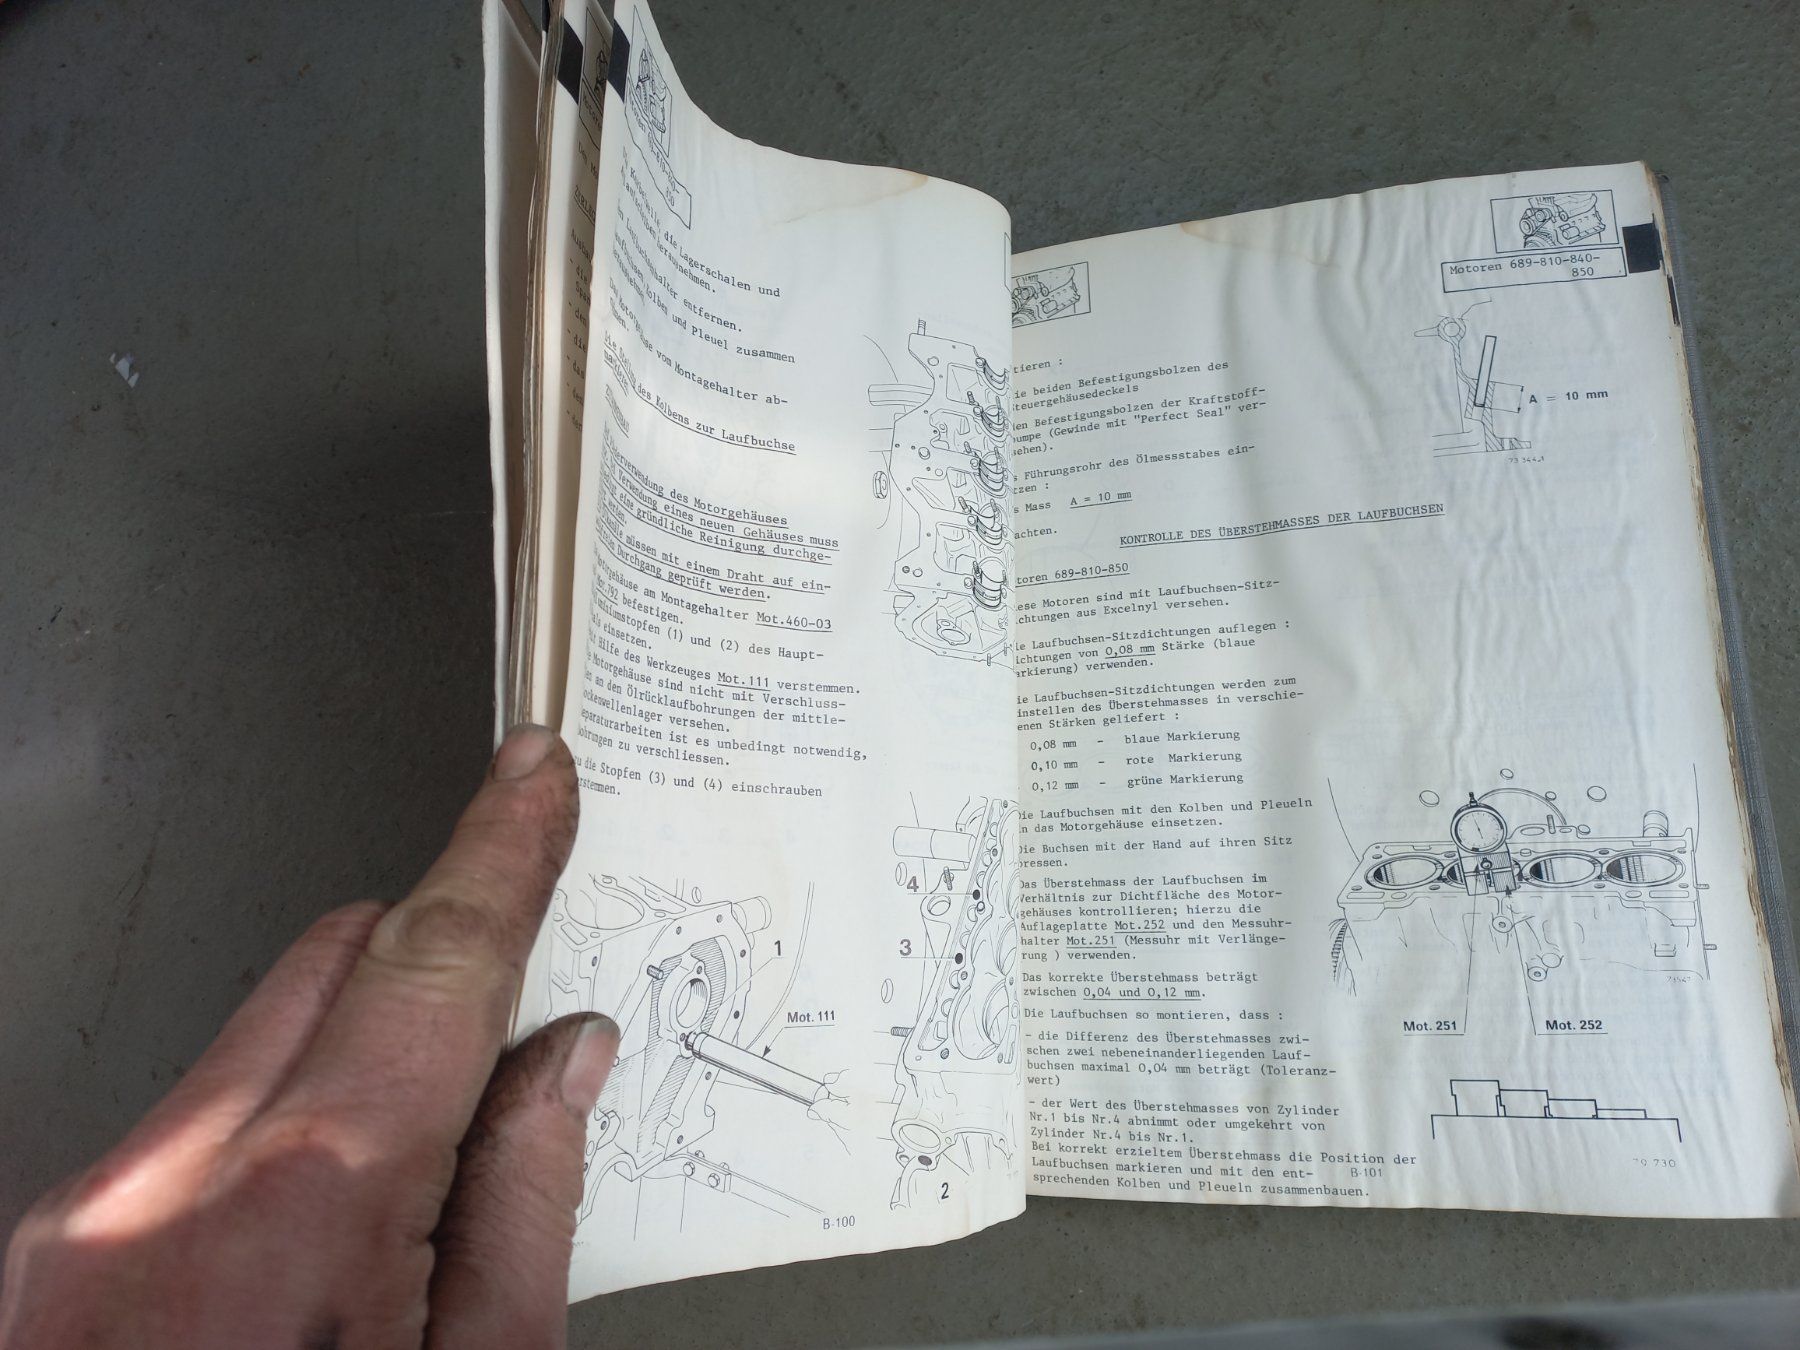 die Lagerschalen und
herausnehmen.
Laufbuchsenhalter entfernen.
Kolben und Pleuel zusammen
vom Montagehalter ab-
des Kolbens zur Laufbuchse
des Motorgehäuses
Verwendung eines neuen Gehäuses muss
eine gründliche Reinigung durchge-
müssen mit einem Draht auf ein-
Durchgang geprüft werden.
am Montagehalter Mot.460-03
Mot.792 befestigen.
(1) und (2) des Haupt-
einsetzen.
Hilfe des Werkzeuges Mot.111 verstemmen.
Motorgehäuse sind nicht mit Verschluss-
an den Ölrücklaufbohrungen der mittle-
versehen.
ist es unbedingt notwendig,
zu verschliessen.
die Stopfen (3) und (4) einschrauben
4
3
1
Mot. 111
2
B-100
Motoren 689-810-840-
850
die beiden Befestigungsbolzen des
Befestigungsbolzen der Kraftstoff-
(Gewinde mit "Perfect Seal" ver-
Führungsrohr des Ölmessstabes ein-
Mass A = 10 mm
A = 10 mm
73 344-1
KONTROLLE DES ÜBERSTEHMASSES DER LAUFBUCHSEN
689-810-850
Motoren sind mit Laufbuchsen-Sitz-
aus Excelnyl versehen.
Laufbuchsen-Sitzdichtungen auflegen :
von 0,08 mm Stärke (blaue
verwenden.
Laufbuchsen-Sitzdichtungen werden zum
des Überstehmasses in verschie-
Stärken geliefert :
0,08 mm - blaue Markierung
0,10 mm - rote Markierung
0,12 mm - grüne Markierung
Die Laufbuchsen mit den Kolben und Pleueln
in das Motorgehäuse einsetzen.
Die Buchsen mit der Hand auf ihren Sitz
pressen.
Das Überstehmass der Laufbuchsen im
Verhältnis zur Dichtfläche des Motor-
gehäuses kontrollieren; hierzu die
Auflageplatte Mot.252 und den Messuhr-
halter Mot.251 (Messuhr mit Verlänge-
rung ) verwenden.
Das korrekte Überstehmass beträgt
zwischen 0,04 und 0,12 mm.
Die Laufbuchsen so montieren, dass :
- die Differenz des Überstehmasses zwi-
schen zwei nebeneinanderliegenden Lauf-
buchsen maximal 0,04 mm beträgt (Toleranz-
wert)
- der Wert des Überstehmasses von Zylinder
Nr.1 bis Nr.4 abnimmt oder umgekehrt von
Zylinder Nr.4 bis Nr.1.
Bei korrekt erzieltem Überstehmass die Position der
Laufbuchsen markieren und mit den ent-
sprechenden Kolben und Pleueln zusammenbauen.
Mot. 251
Mot. 252
79 730
B-101